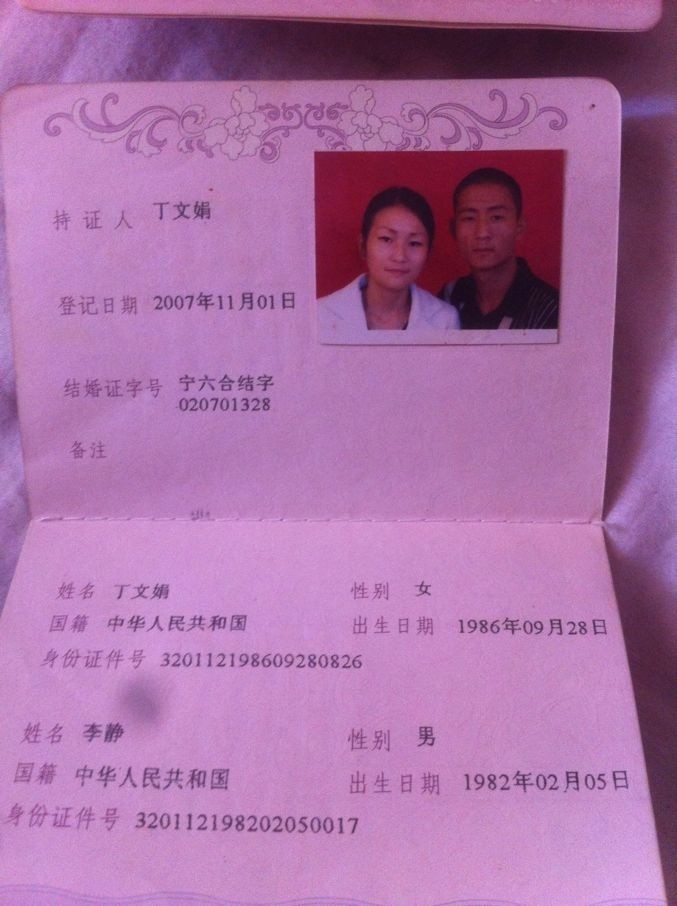 持证人 丁文娟
登记日期 2007年11月01日
结婚证字号 宁六合结字
020701328
备注
姓名 丁文娟 性别 女
国籍 中华人民共和国 出生日期 1986年09月28日
身份证件号 320112198609280826
姓名 李静 性别 男
国籍 中华人民共和国 出生日期 1982年02月05日
身份证件号 320112198202050017